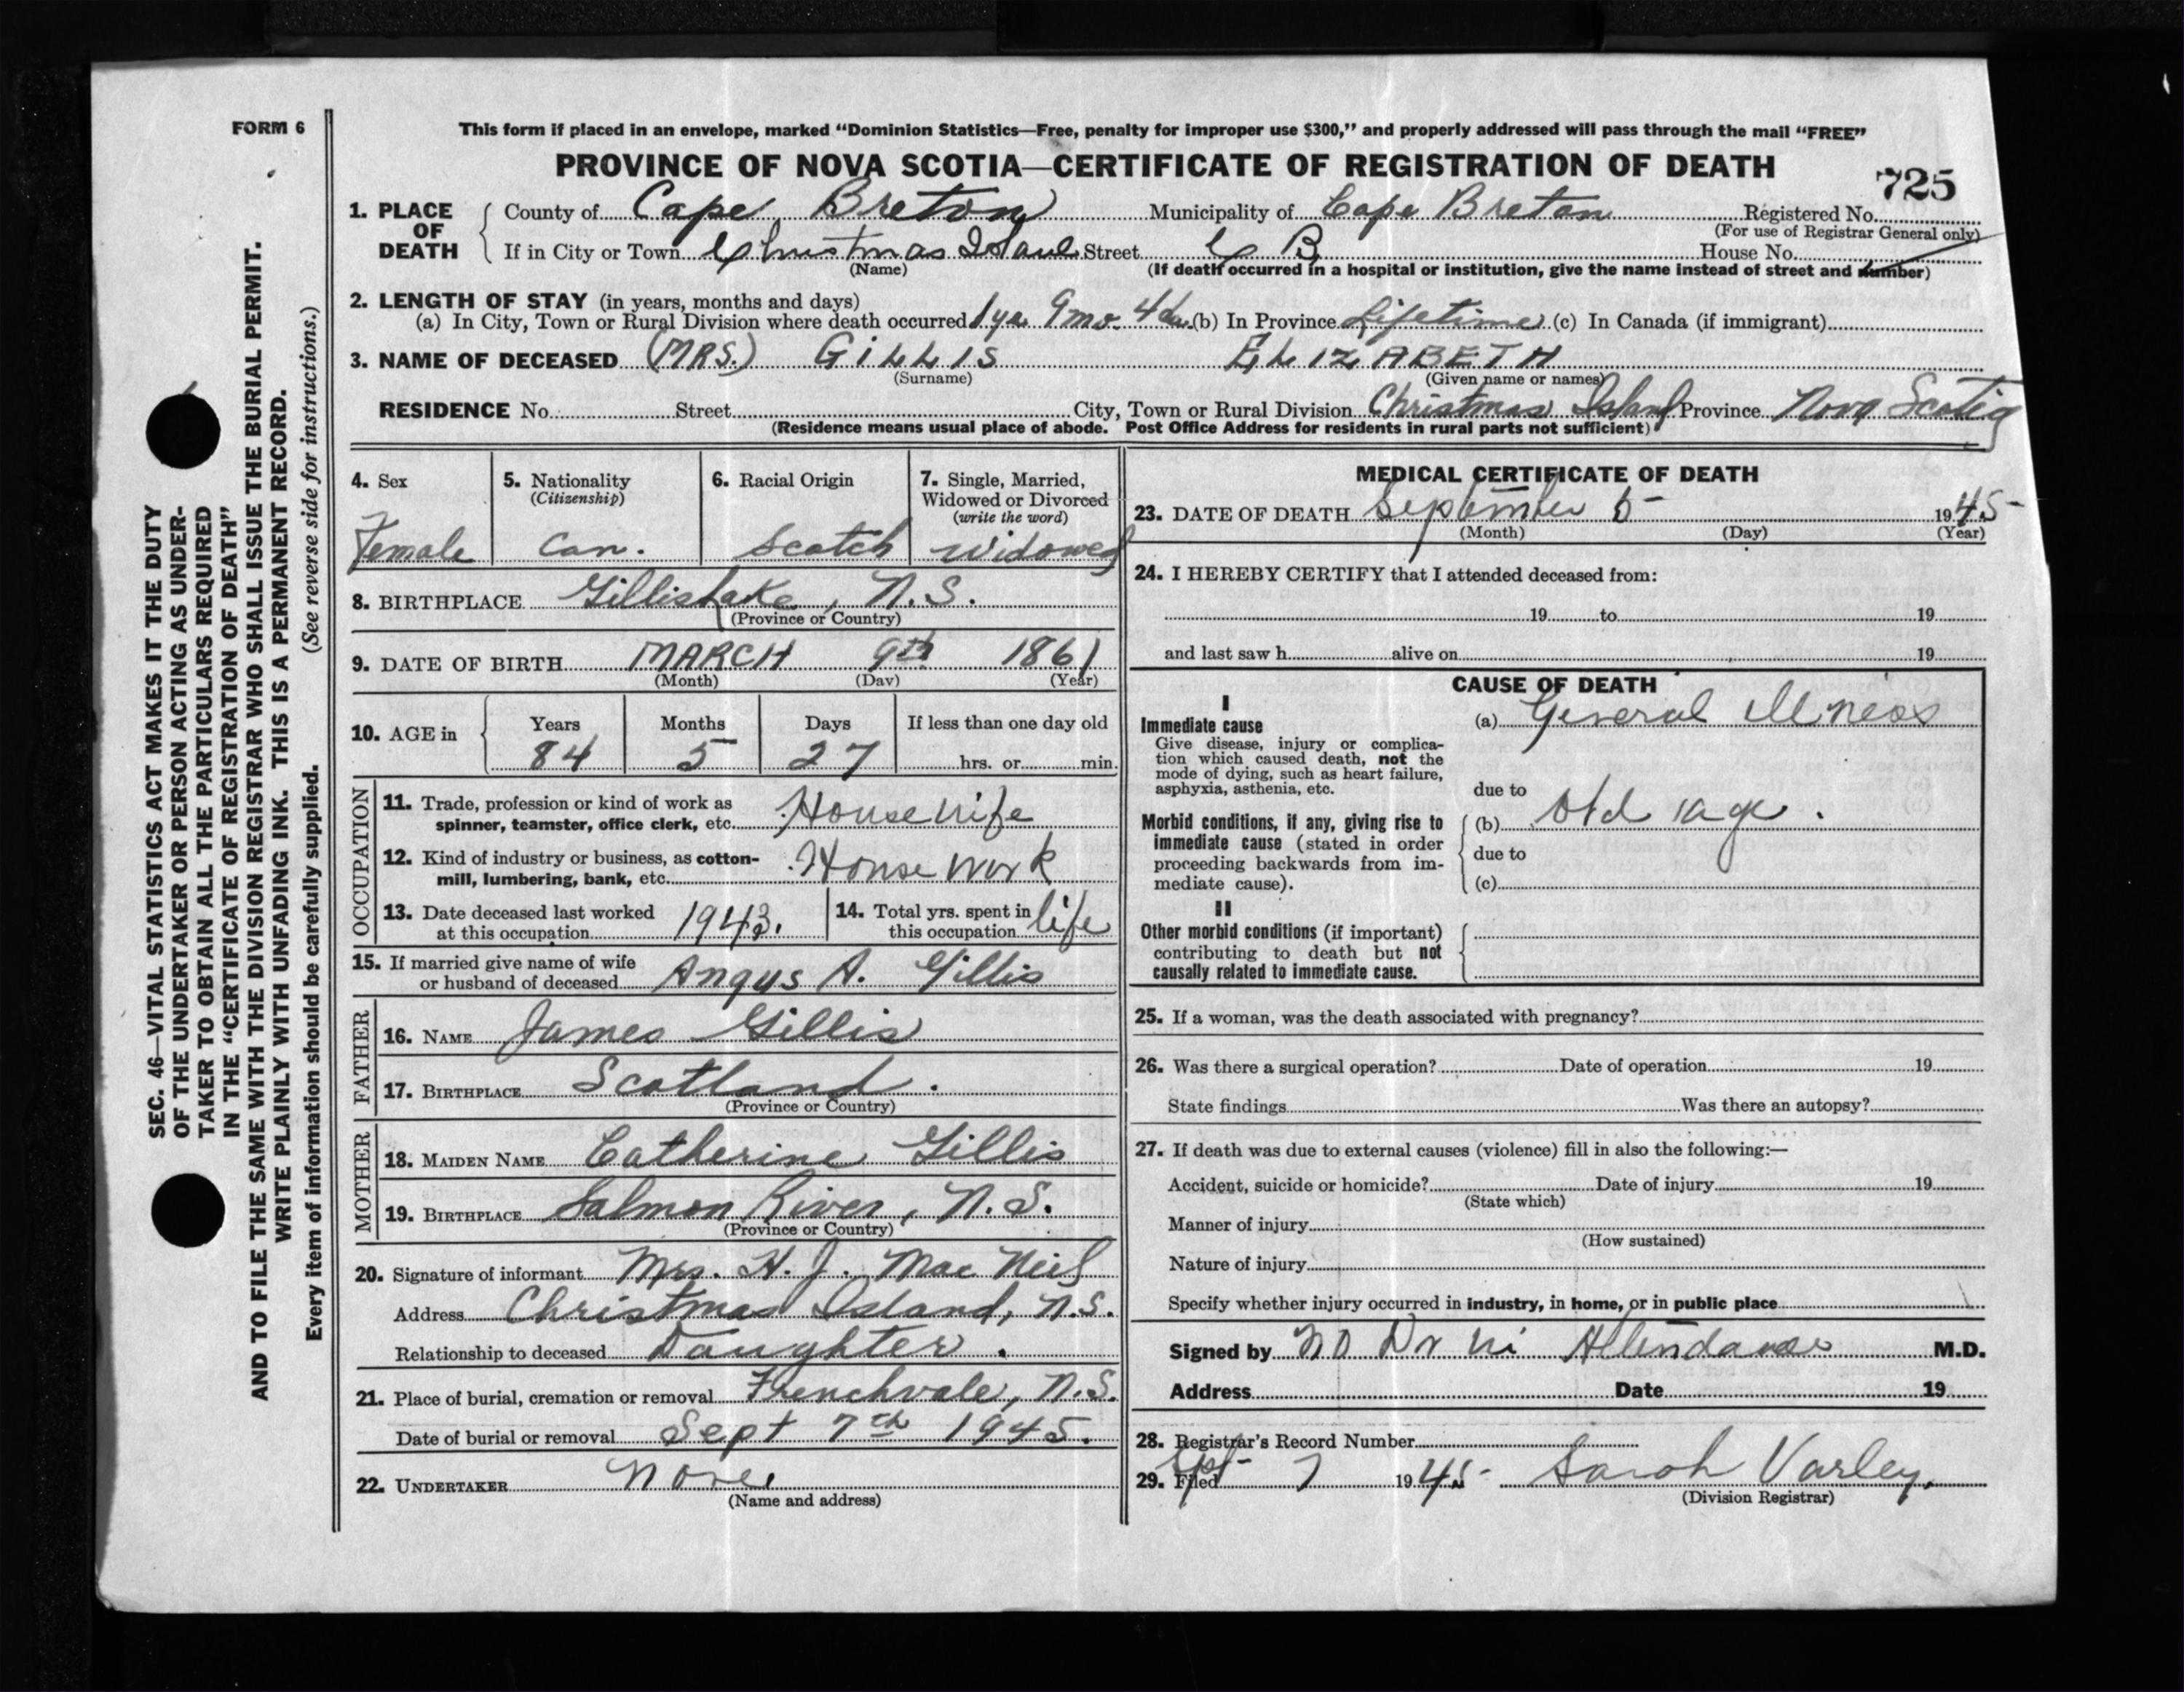 FORM 6
This form if placed in an envelope, marked "Dominion Statistics—Free, penalty for improper use $300," and properly addressed will pass through the mail "FREE"
PROVINCE OF NOVA SCOTIA—CERTIFICATE OF REGISTRATION OF DEATH
725
1. PLACE OF DEATH
County of Cape Breton Municipality of Cape Breton Registered No.
(For use of Registrar General only)
If in City or Town Christmas Island Street C B House No.
(Name) (If death occurred in a hospital or institution, give the name instead of street and number)
2. LENGTH OF STAY (in years, months and days)
(a) In City, Town or Rural Division where death occurred 1 yr. 9 mo. 4 da. (b) In Province Lifetime (c) In Canada (if immigrant)
3. NAME OF DECEASED (MRS.) GILLIS ELIZABETH
(Surname) (Given name or names)
RESIDENCE No. Street City, Town or Rural Division Christmas Island Province Nova Scotia
(Residence means usual place of abode. Post Office Address for residents in rural parts not sufficient)
4. Sex
Female
5. Nationality
(Citizenship)
Can.
6. Racial Origin
Scotch
7. Single, Married, Widowed or Divorced
(write the word)
Widowed
8. BIRTHPLACE Gillis Lake, N.S.
(Province or Country)
9. DATE OF BIRTH MARCH 9th 1861
(Month) (Day) (Year)
10. AGE in
Years Months Days If less than one day old
84 5 27 hrs. or min.
OCCUPATION
11. Trade, profession or kind of work as
spinner, teamster, office clerk, etc. Housewife
12. Kind of industry or business, as cotton-
mill, lumbering, bank, etc. House work
13. Date deceased last worked
at this occupation 1943.
14. Total yrs. spent in
this occupation life
15. If married give name of wife
or husband of deceased Angus A. Gillis
FATHER
16. NAME James Gillis
17. BIRTHPLACE Scotland.
(Province or Country)
MOTHER
18. MAIDEN NAME Catherine Gillis
19. BIRTHPLACE Salmon River, N.S.
(Province or Country)
20. Signature of informant Mrs. H. J. Mac Neil
Address Christmas Island, N.S.
Relationship to deceased Daughter.
21. Place of burial, cremation or removal Frenchvale, N.S.
Date of burial or removal Sept 7th 1945.
22. UNDERTAKER None
(Name and address)
MEDICAL CERTIFICATE OF DEATH
23. DATE OF DEATH September 5 1945
(Month) (Day) (Year)
24. I HEREBY CERTIFY that I attended deceased from:
19 to 19
and last saw h alive on 19
CAUSE OF DEATH
I
Immediate cause (a) General illness
Give disease, injury or complica-
tion which caused death, not the
mode of dying, such as heart failure,
asphyxia, asthenia, etc.
due to
Morbid conditions, if any, giving rise to
immediate cause (stated in order
proceeding backwards from im-
mediate cause).
(b) Old age.
due to
(c)
II
Other morbid conditions (if important)
contributing to death but not
causally related to immediate cause.
25. If a woman, was the death associated with pregnancy?
26. Was there a surgical operation? Date of operation 19
State findings Was there an autopsy?
27. If death was due to external causes (violence) fill in also the following:—
Accident, suicide or homicide? Date of injury 19
(State which)
Manner of injury
(How sustained)
Nature of injury
Specify whether injury occurred in industry, in home, or in public place
Signed by No Dr in Attendance M.D.
Address Date 19
28. Registrar's Record Number
29. Filed Sept 7 1945 Sarah Varley.
(Division Registrar)
SEC. 46—VITAL STATISTICS ACT MAKES IT THE DUTY
OF THE UNDERTAKER OR PERSON ACTING AS UNDER-
TAKER TO OBTAIN ALL THE PARTICULARS REQUIRED
IN THE "CERTIFICATE OF REGISTRATION OF DEATH"
AND TO FILE THE SAME WITH THE DIVISION REGISTRAR WHO SHALL ISSUE THE BURIAL PERMIT.
WRITE PLAINLY WITH UNFADING INK. THIS IS A PERMANENT RECORD.
Every item of information should be carefully supplied. (See reverse side for instructions.)